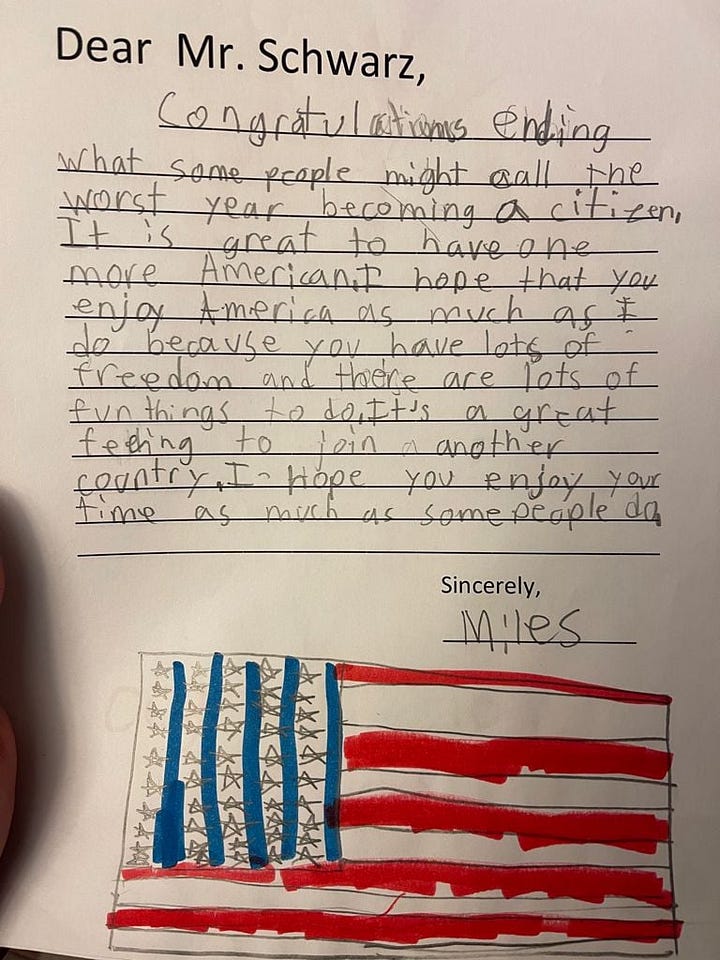 Dear Mr. Schwarz,
Congratulations ending
what some people might call the
worst year becoming a citizen,
It is great to have one
more American.I hope that you
enjoy America as much as I
do because you have lots of
freedom and there are lots of
fun things to do.It's a great
feeling to join a another
country.I Hope you enjoy your
time as much as some people do
Sincerely,
Miles